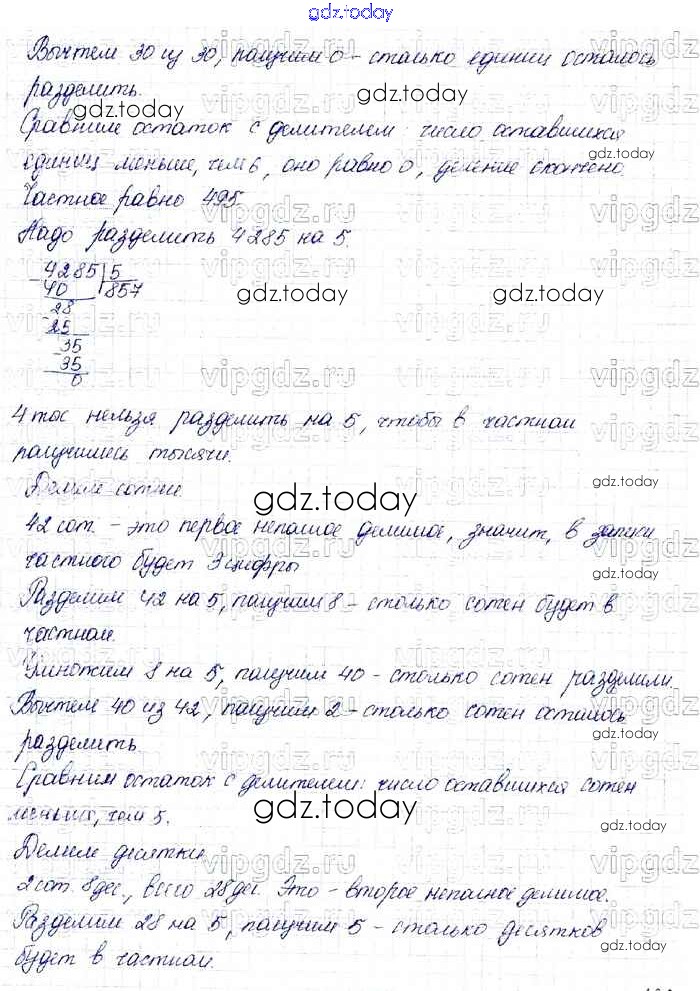 gdz.today
Вычтем 30 из 30, получим 0 - столько единиц осталось
разделить.
gdz.today
gdz.today
Сравним остаток с делителем: число оставшихся
gdz.today
единиц меньше, чем 6, оно равно 0, деление окончено.
Частное равно 495.
Надо разделить 4285 на 5.
4285 5
- 40 857
gdz.today
gdz.today
28
- 25
35
- 35
0
4 тыс нельзя разделить на 5, чтобы в частном
получились тысячи.
gdz.today
Делим сотни.
gdz.today
42 сот. - это первое неполное делимое, значит, в записи
частного будет 3 цифры
gdz.today
Разделим 42 на 5, получим 8 - столько сотен будет в
частном.
gdz.today
Умножим 8 на 5, получим 40 - столько сотен разделили.
Вычтем 40 из 42, получим 2 - столько сотен осталось
разделить
Сравним остаток с делителем: число оставшихся сотен
меньше, чем 5.
gdz.today
gdz.today
Делим десятки.
2 сот. 8 дес., всего 28 дес. Это - второе неполное делимое.
Разделим 28 на 5, получим 5 - столько десятков
gdz.today
gdz.today
будет в частном.